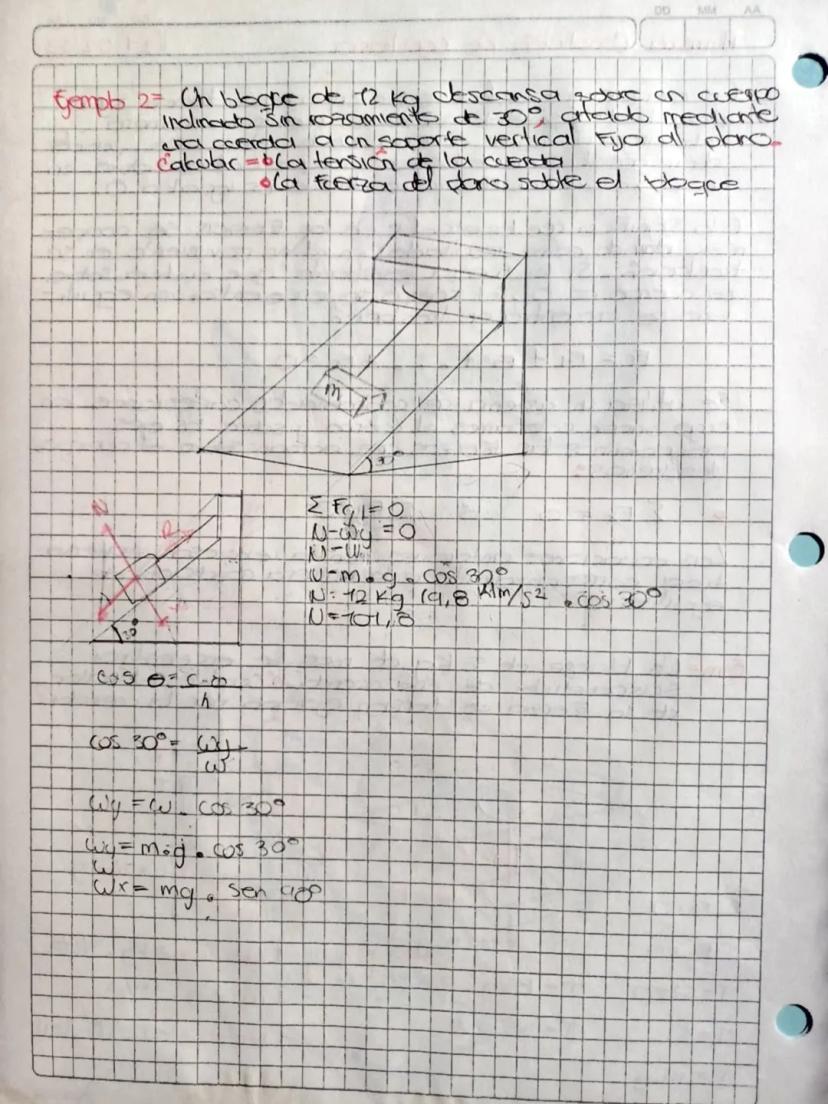 DD MM AA
Ejemplo 2= Un bloque de 12 Kg descansa sobre un cuerpo
inclinado sin rozamiento de 30°, atado mediante
una cuerda a un soporte vertical Fijo al plano.
Calcular = • La tensión de la cuerda
• La Fuerza del plano sobre el bloque
m
30°
N
30°
Σ Fy = 0
N-wy = 0
N-W
N-m.g. cos 30°
N= 12 Kg (9,8 m/s² . cos 30°
N=101,8
cos θ= c.a
h
cos 30°= wy
w
wy = w. cos 30°
wy= m.g. cos 30°
W
Wx= mg. sen